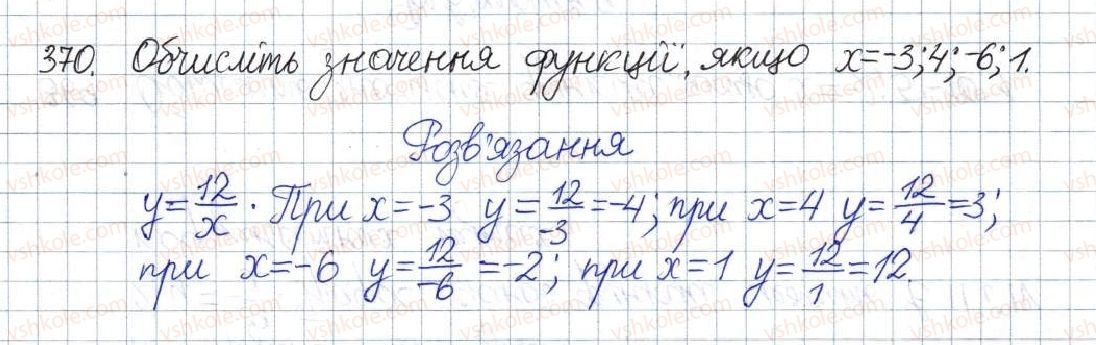 370. Обчисліть значення функції, якщо x=-3; 4; -6; 1.
Розв'язання
y=12/x. При x=-3 y=12/-3=-4; при x=4 y=12/4=3;
при x=-6 y=12/-6=-2; при x=1 y=12/1=12.